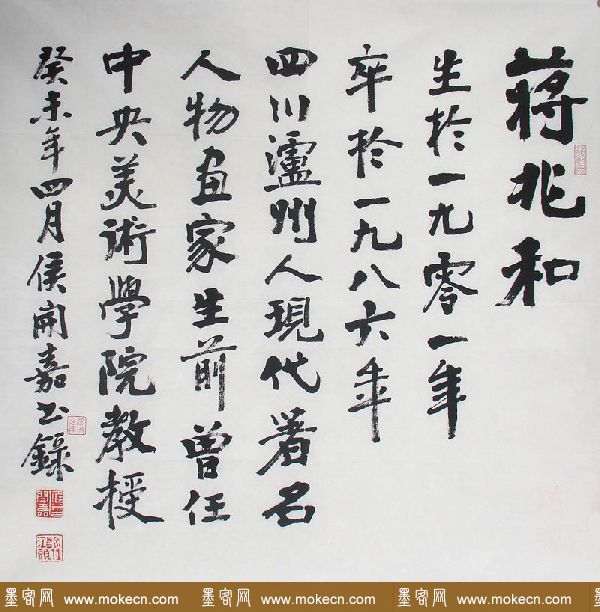 蔣兆和
生於一九零一年
卒於一九八六年
四川瀘州人現代著名
人物画家生前曾任
中央美術學院教授
癸未年四月侯開嘉书錄
墨客网 www.mokecn.com 墨客网 www.mokecn.com 墨客网 www.mokecn.com